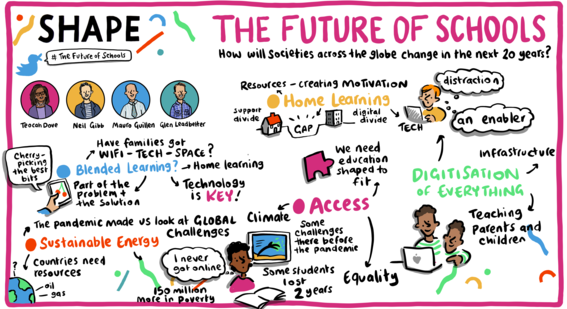 SHAPE
# The Future of Schools
THE FUTURE OF SCHOOLS
How will Societies across the globe change in the next 20 years?
Teacah Dove
Neil Gibb
Mauro Guillen
Glen Leadbetter
Resources – creating MOTIVATION
Home Learning
support
divide
GAP
digital
divide
TECH
distraction
an enabler
Have families got
WIFI – TECH – SPACE?
Cherry-
picking
the best
bits
Blended Learning?
Home learning
Part of the
problem +
the Solution
Technology
is KEY!
We need
education
shaped to
fit
infrastructure
DIGITISATION
OF EVERYTHING
Teaching
Parents and
children
The pandemic made us look at GLOBAL
Challenges
Climate
Access
Some
challenges
there before
the pandemic
Sustainable Energy
Countries need
resources
?
oil
gas
I never
got online
150 million
more in poverty
Some students
lost
2 years
Equality